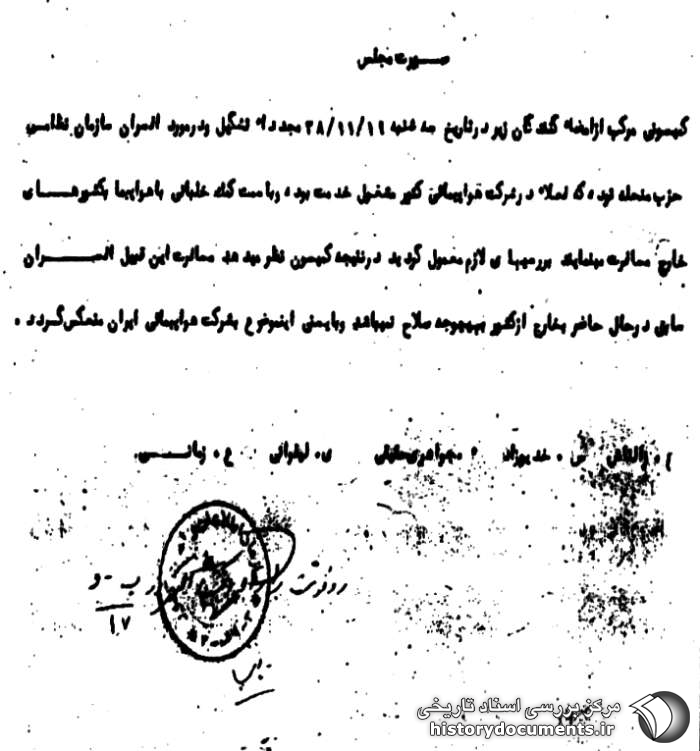 صورت مجلس
کمیسیونی مرکب از امضاء کنندگان زیر در تاریخ سه شنبه ۳۸/۱۱/۱۹ مجددا تشکیل و در مورد افسران سازمان نظامی
حزب منحله توده که فعلا در شرکت هواپیمائی کشور مشغول خدمت بوده و با سمت کمک خلبانی با هواپیما بکشورهای
خارج مسافرت مینمایند بررسیهای لازم معمول گردید در نتیجه کمیسیون نظر میدهد مسافرت این قبیل افسران
سابق در حال حاضر بخارج از کشور بهیچوجه صلاح نمیباشد و بایستی اینموضوع بشرکت هواپیمائی ایران منعکس گردد .
ع . زمانی
رونوشت
ب - و
۱۷
مرکز بررسی اسناد تاریخی
historydocuments.ir